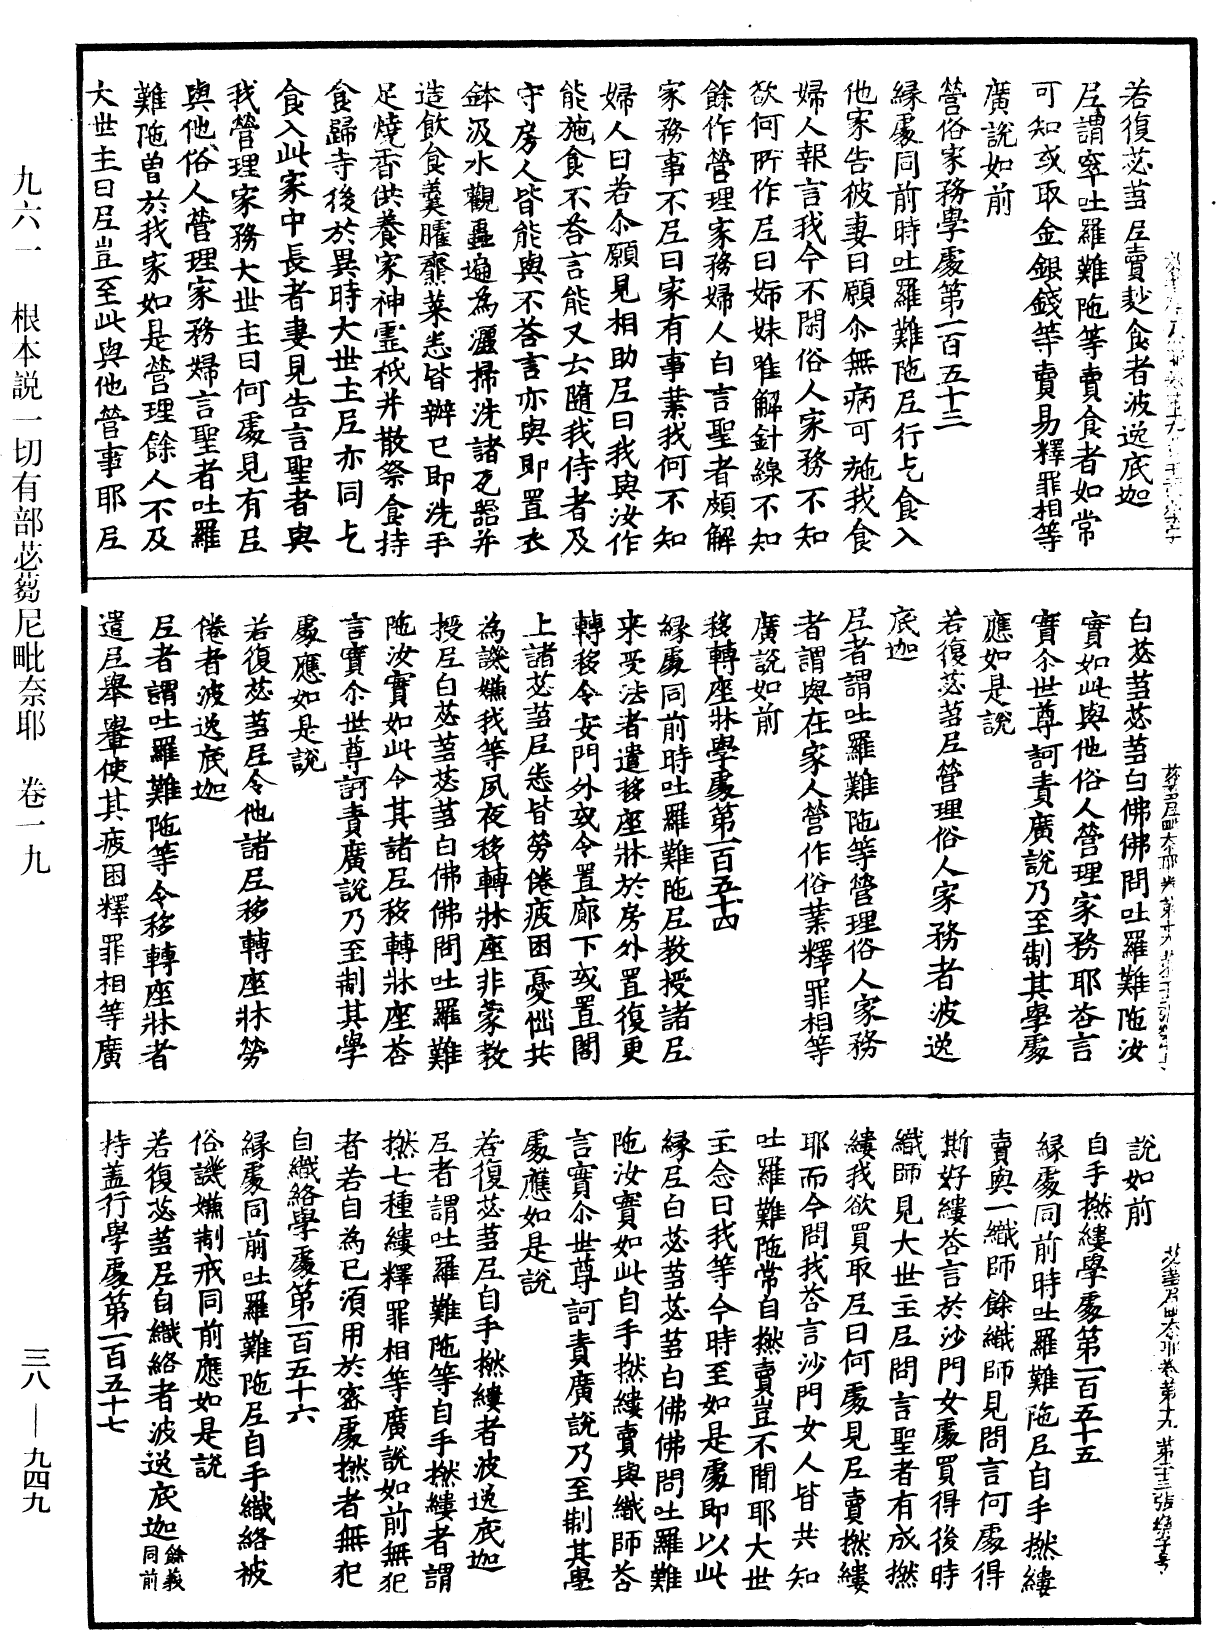 若復苾芻尼賣麨食者波逸底迦
尼謂窣吐羅難陁等賣食者如常
可知或取金銀錢等賣易釋罪相等
廣說如前
營俗家務學處第一百五十三
緣處同前時吐羅難陁尼行乞食入
他家告彼妻曰願尒無病可施我食
婦人報言我今不閑俗人家務不知
欲何所作尼曰姉妹唯解針線不知
餘作營理家務婦人白言聖者頗解
家務事不尼曰家有事業我何不知
婦人曰若尒願見相助尼曰我與汝作
能施食不荅言能又去隨我侍者及
守房人皆能與不荅言亦與即置衣
鉢汲水觀蟲遍為灑掃洗諸瓦器并
造飲食羹臛虀菜悉皆辦已即洗手
足燒香供養家神靈祇并散祭食持
食歸寺後於異時大世主尼亦同乞
食入此家中長者妻見告言聖者與
我營理家務大世主曰何處見有尼
與他俗人營理家務婦言聖者吐羅
難陁曾於我家如是營理餘人不及
大世主曰尼豈至此與他營事耶尼
白苾芻苾芻白佛佛問吐羅難陁汝
實如此與他俗人營理家務耶荅言
實尒世尊訶責廣說乃至制其學處
應如是說
若復苾芻尼營理俗人家務者波逸
底迦
尼者謂吐羅難陁等營理俗人家務
者謂與在家人營作俗業釋罪相等
廣說如前
移轉座牀學處第一百五十四
緣處同前時吐羅難陁尼教授諸尼
来受法者遣移座牀於房外置復更
轉移令安門外或令置廊下或置閣
上諸苾芻尼悉皆勞倦疲困憂惱共
為譏嫌我等夙夜移轉牀座非蒙教
授尼白苾芻苾芻白佛佛問吐羅難
陁汝實如此令其諸尼移轉牀座荅
言實尒世尊訶責廣說乃至制其學
處應如是說
若復苾芻尼令他諸尼移轉座牀勞
倦者波逸底迦
尼者謂吐羅難陁等令移轉座牀者
遣尼舉轝使其疲困釋罪相等廣
說如前
自手撚縷學處第一百五十五
緣處同前時吐羅難陁尼自手撚縷
賣與一織師餘織師見問言何處得
斯好縷荅言於沙門女處買得後時
織師見大世主尼問言聖者有成撚
縷我欲買取尼曰何處見尼賣撚縷
耶而今問我荅言沙門女人皆共知
吐羅難陁常自撚賣豈不聞耶大世
主念曰我等今時至如是處即以此
緣尼白苾芻苾芻白佛佛問吐羅難
陁汝實如此自手撚縷賣與織師荅
言實尒世尊訶責廣說乃至制其學
處應如是說
若復苾芻尼自手撚縷者波逸底迦
尼者謂吐羅難陁等自手撚縷者謂
撚七種縷釋罪相等廣說如前無犯
者若自為己須用於密處撚者無犯
自織絡學處第一百五十六
緣處同前吐羅難陁尼自手織絡被
俗譏嫌制戒同前應如是說
若復苾芻尼自織絡者波逸底迦餘義同前
持蓋行學處第一百五十七
九六一 根本說一切有部苾芻尼毗奈耶 卷一九
三八—九四九